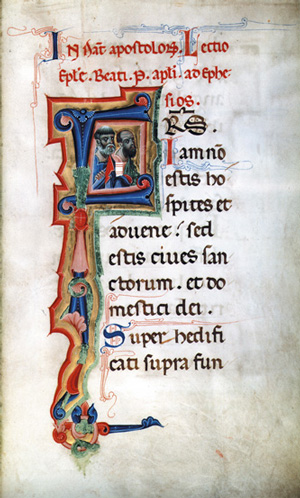 IN Nat̄ apostoloꝝ Lectio
Epl̄e Beati. P. apl̄i. ad ephe
sios.
FR̄S̄
Iam nō
estis ho
spites et
aduene : sed
estis ciues san
ctorum. et do
mestici dei.
Super hedifi
cati supra fun